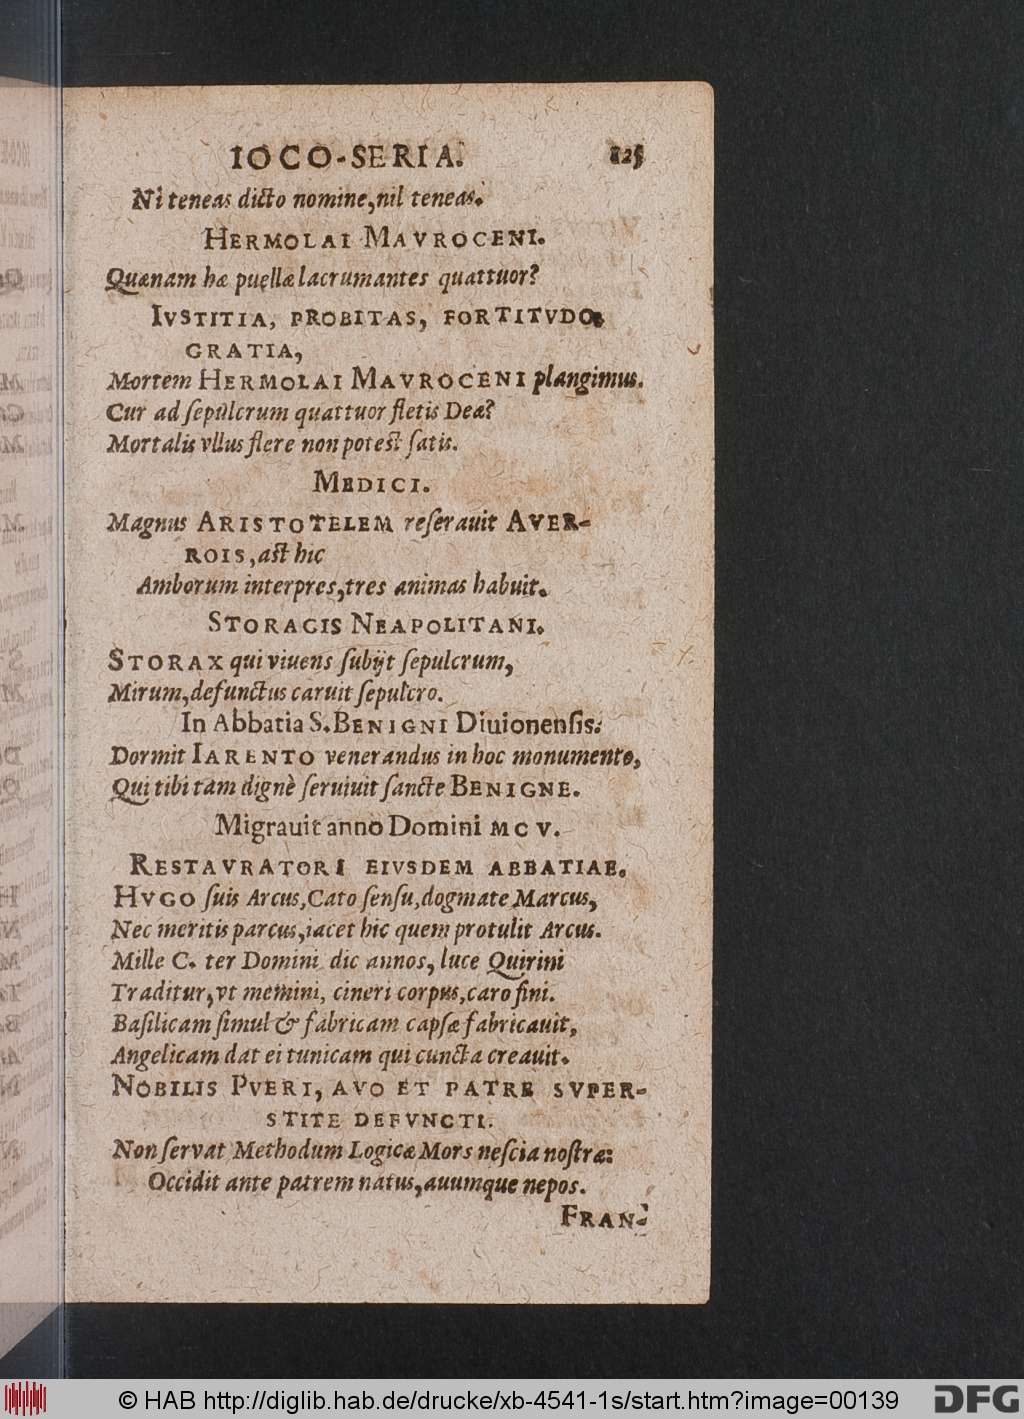 IOCO-SERIA. 125
Ni teneas dicto nomine, nil teneas.
HERMOLAI MAVROCENI.
Quænam hæ puellæ lacrumantes quattuor?
IVSTITIA, PROBITAS, FORTITVDO,
GRATIA,
Mortem HERMOLAI MAVROCENI plangimus.
Cur ad ſepulcrum quattuor fletis Deæ?
Mortalis vllus flere non poteſt ſatis.
MEDICI.
Magnus ARISTOTELEM reſerauit AVER-
ROIS, aſt hic
Amborum interpres, tres animas habuit.
STORACIS NEAPOLITANI.
STORAX qui viuens ſubijt ſepulcrum,
Mirum, defunctus caruit ſepulcro.
In Abbatia S. BENIGNI Diuionenſis:
Dormit IARENTO venerandus in hoc monumento,
Qui tibi tam dignè ſeruiuit ſancte BENIGNE.
Migrauit anno Domini MCV.
RESTAVRATORI EIVSDEM ABBATIAE.
HVGO ſuis Arcus, Cato ſenſu, dogmate Marcus,
Nec meritis parcus, iacet hic quem protulit Arcus.
Mille C. ter Domini dic annos, luce Quirini
Traditur, vt memini, cineri corpus, caro fini.
Baſilicam ſimul & fabricam capſæ fabricauit,
Angelicam dat ei tunicam qui cuncta creauit.
NOBILIS PVERI, AVO ET PATRE SVPER-
STITE DEFVNCTI.
Non ſervat Methodum Logicæ Mors neſcia noſtræ:
Occidit ante patrem natus, auumque nepos.
FRAN-
© HAB http://diglib.hab.de/drucke/xb-4541-1s/start.htm?image=00139 DFG